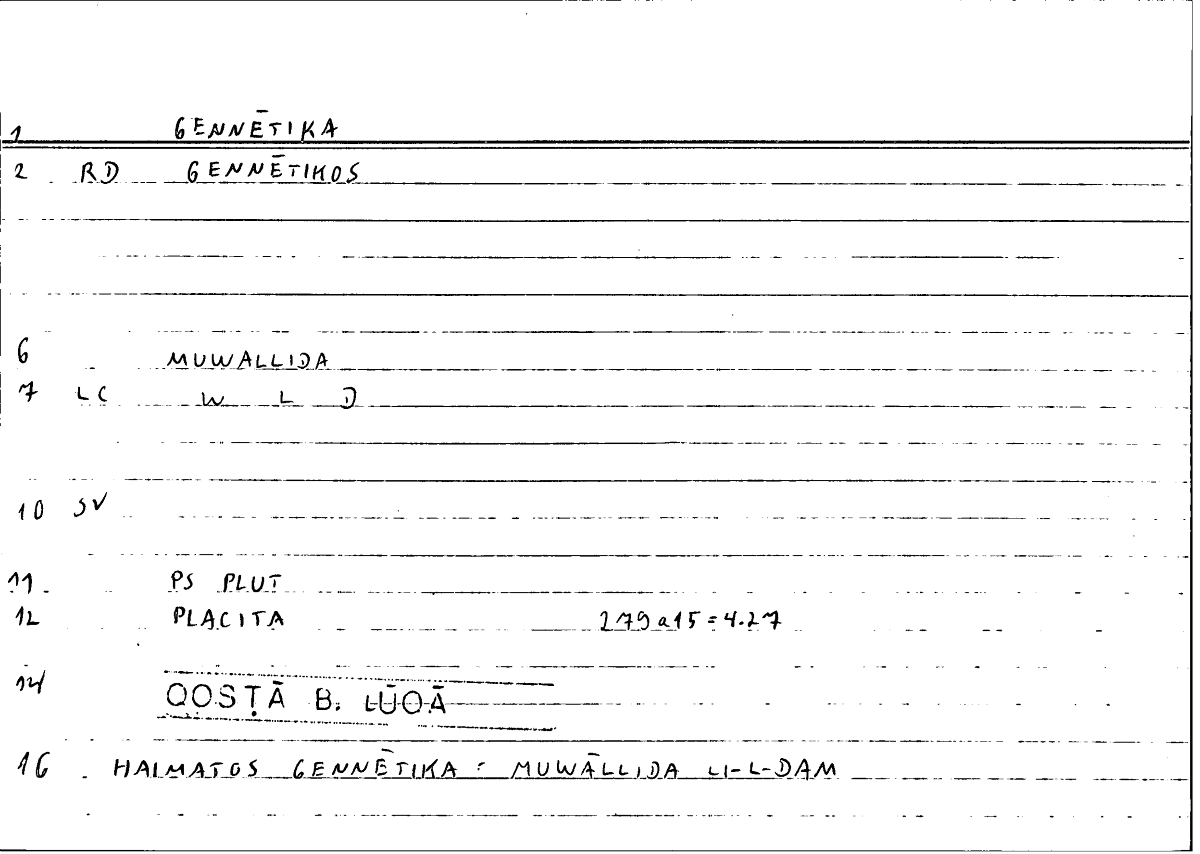 1 GENNĒTIKA
2 RD GENNĒTIKOS
6 MUWALLIDA
7 LC W L D
10 SV
11 PS PLUT
12 PLACITA 279a15=4.27
14 QOSṬĀ B. LŪQĀ
16 HAIMATOS GENNĒTIKA : MUWĀLLIDA LI-L-DAM